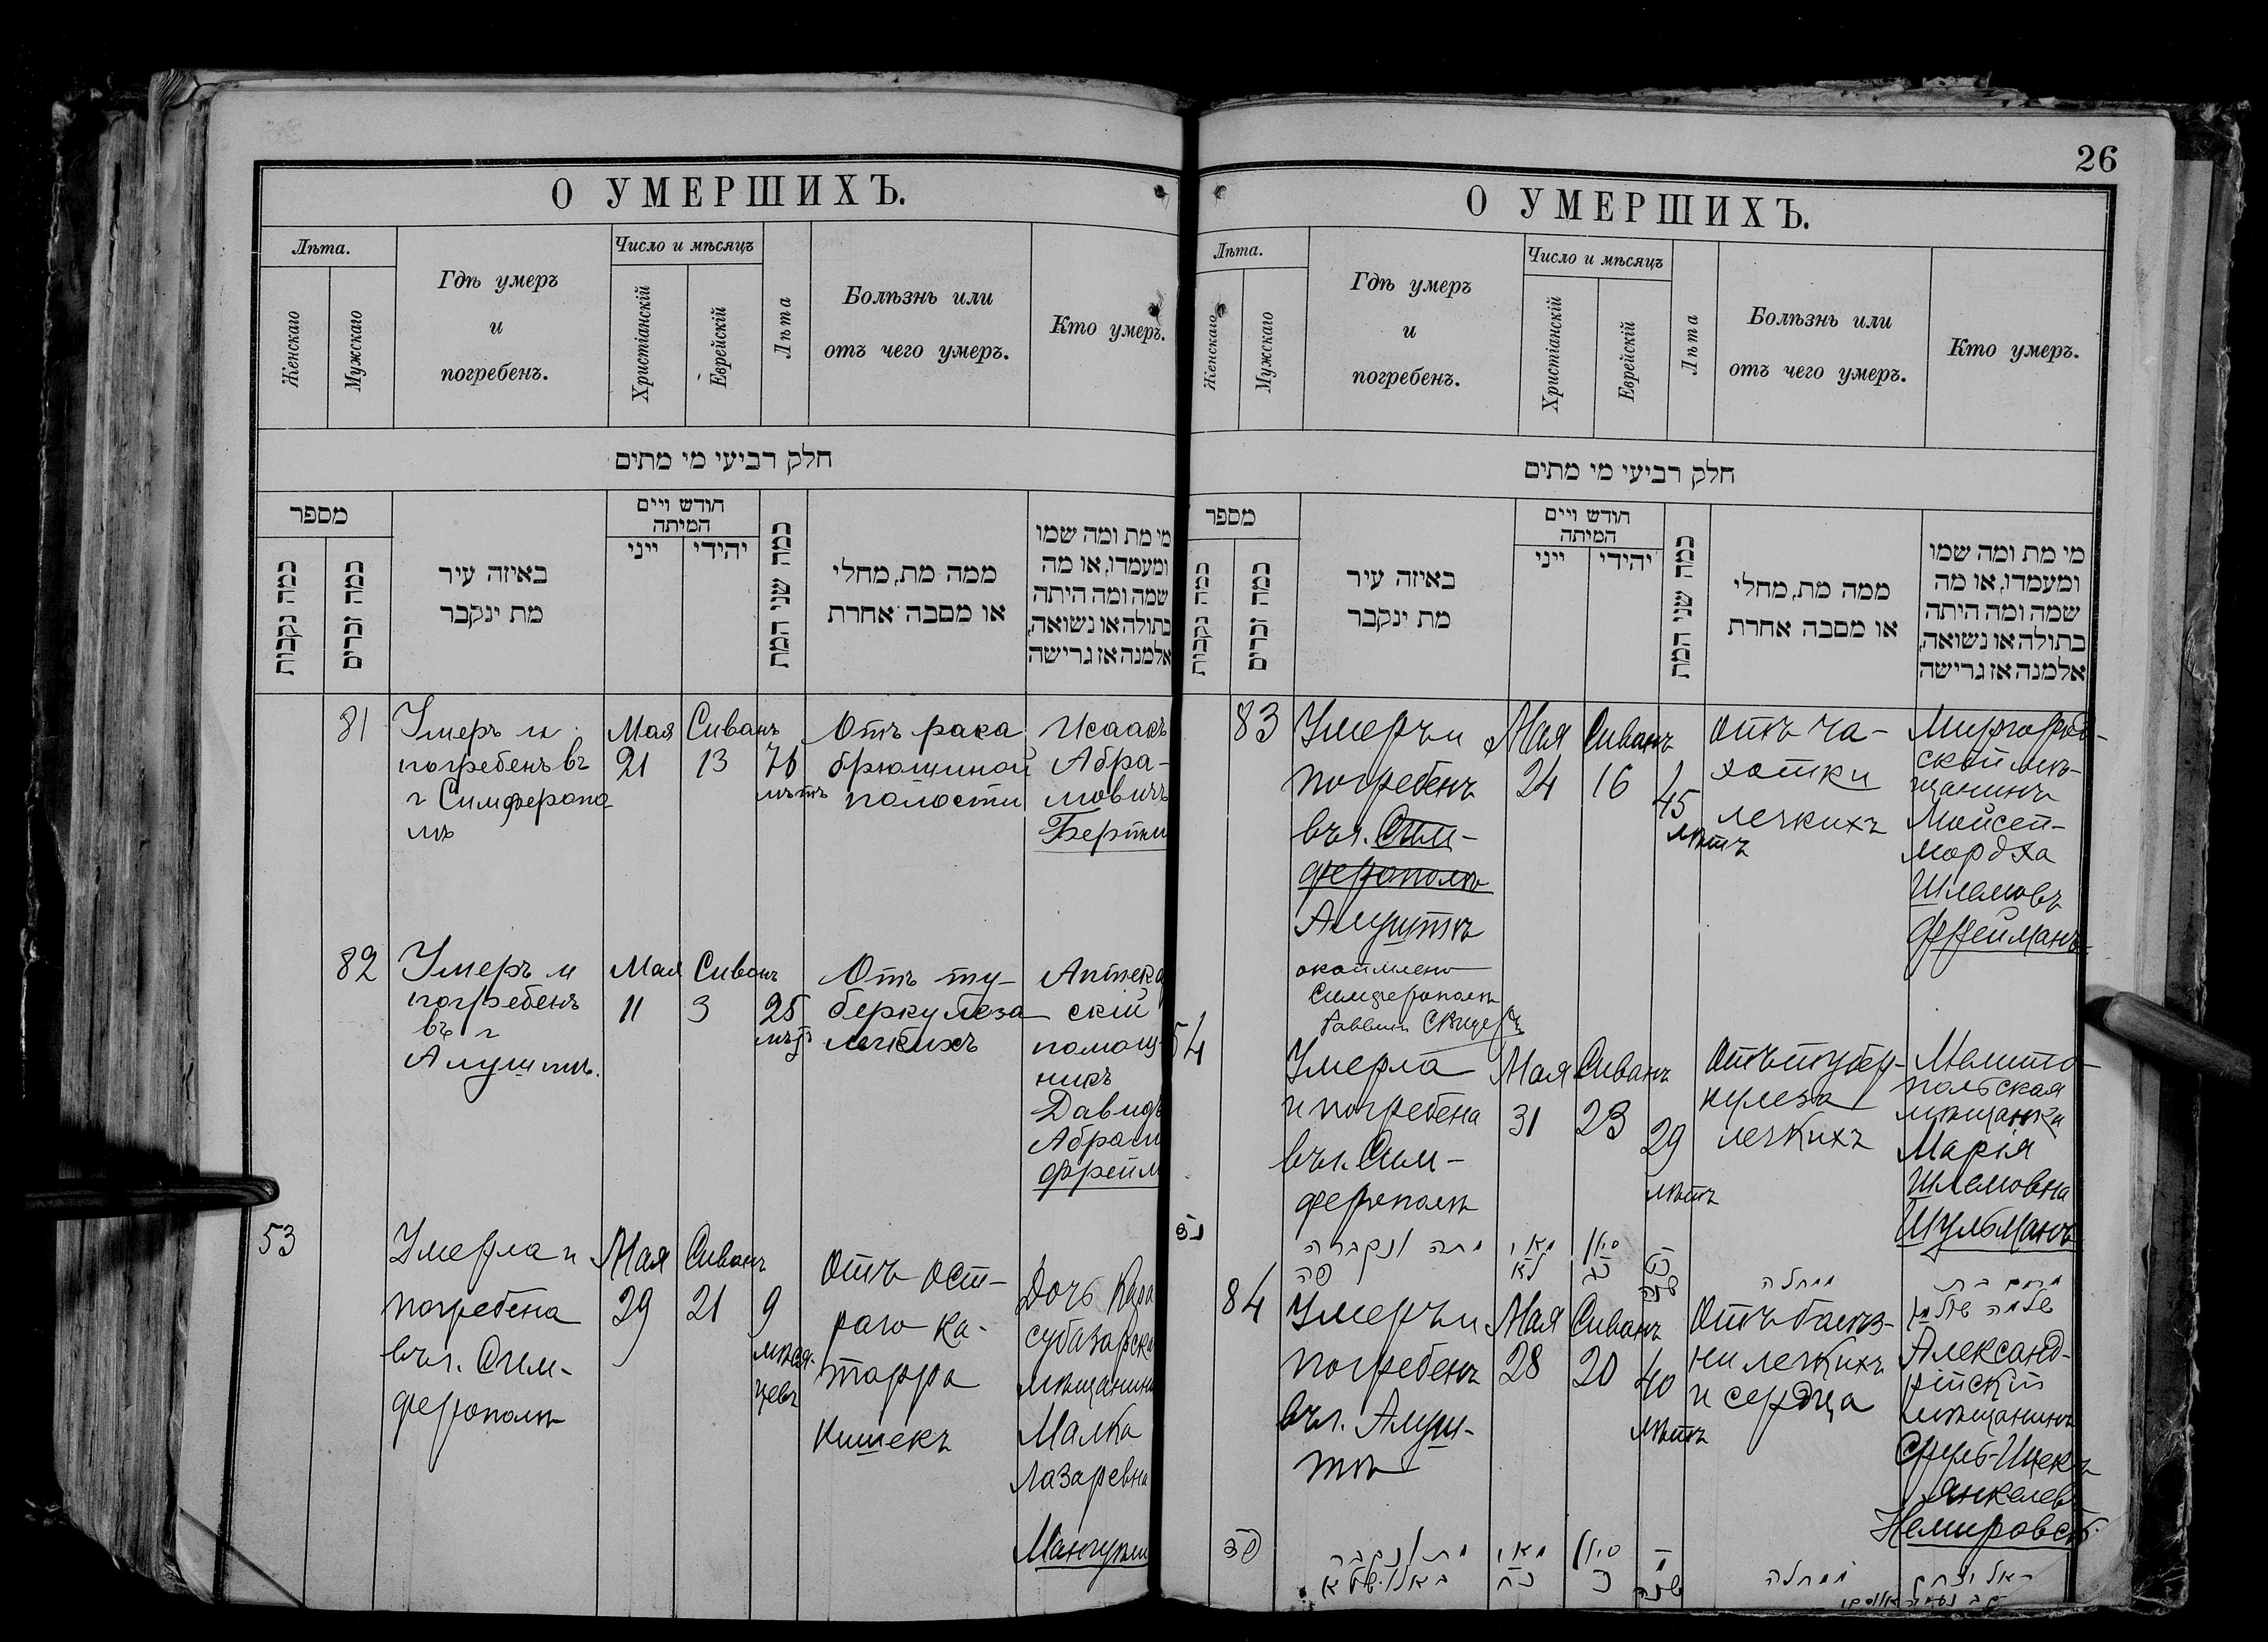 О УМЕРШИХЪ.
Лѣта.
Женскаго
Мужскаго
Гдѣ умеръ
и
погребенъ.
Число и мѣсяцъ
Христіанскій
Еврейскій
Лѣта
Болѣзнь или
отъ чего умеръ.
Кто умеръ.
חלק רביעי מי מתים
מספר
כמה נקבות
כמה זכרים
באיזה עיר
מת ינקבר
חודש ויים
המיתה
ייני
יהודי
כמה שני המת
ממה מת, מחלי
או מסבה אחרת
מי מת ומה שמו
ומעמדו, או מה
שמה ומה היתה
בתולה או נשואה,
אלמנה אז גרישה
81
Умеръ и
погребенъ въ
г Симферопо
лѣ
Мая
21
Сиванъ
13
76
лѣтъ
Отъ рака
брюшиной
полости
Исаакъ
Абра-
мовичъ
82
Умеръ и
погребенъ
въ г
Алуштѣ.
Мая
11
Сиванъ
3
25
лѣтъ
Отъ ту-
беркулеза
легкихъ
скій
помощ-
никъ
Давидъ
53
Умерла и
погребена
въ г. Сим-
ферополѣ
Мая
29
Сиванъ
21
9
мѣся-
цевъ
Отъ ост-
раго ка-
тарра
кишекъ
Дочь Кара
субазарска
мѣщанина
Малка
Лазаревна
26
О УМЕРШИХЪ.
Лѣта.
Женскаго
Мужскаго
Гдѣ умеръ
и
погребенъ.
Число и мѣсяцъ
Христіанскій
Еврейскій
Лѣта
Болѣзнь или
отъ чего умеръ.
Кто умеръ.
חלק רביעי מי מתים
מספר
כמה נקבות
כמה זכרים
באיזה עיר
מת ינקבר
חודש ויים
המיתה
ייני
יהודי
כמה שני המת
ממה מת, מחלי
או מסבה אחרת
מי מת ומה שמו
ומעמדו, או מה
שמה ומה היתה
בתולה או נשואה,
אלמנה אז גרישה
83
Умеръ и
погребенъ
въ г. Сим-
ферополѣ
Алуштѣ
Симферополѣ
Мая
24
Сиванъ
16
45
лѣтъ
Отъ ча-
хотки
легкихъ
Миргород-
скій мѣ-
щанинъ
Мойсей-
Мордха
Шлемовъ
Фрейманъ
54
Умерла
и погребена
въ г. Сим-
ферополѣ
Мая
31
Сиванъ
23
29
лѣтъ
Отъ тубер-
кулеза
легкихъ
Мелито-
польская
мѣщанка
Марія
Шлемовна
Шульманъ
נד
מתה ונקברה
פה
מאי
לא
סיון
כג
כט
שנה
ממחלה
מרים בת
שלמה שולמן
84
Умеръ и
погребенъ
въ г. Алуш-
тѣ
Мая
28
Сиванъ
20
40
лѣтъ
Отъ болѣз-
ни легкихъ
и сердца
Александ-
рійскій
мѣщанинъ
Сруль-Ицекъ
Янкелев
Немировск.
פד
מת ונקבר
מאי
כח
סיון
כ
מ
שנה
ממחלה